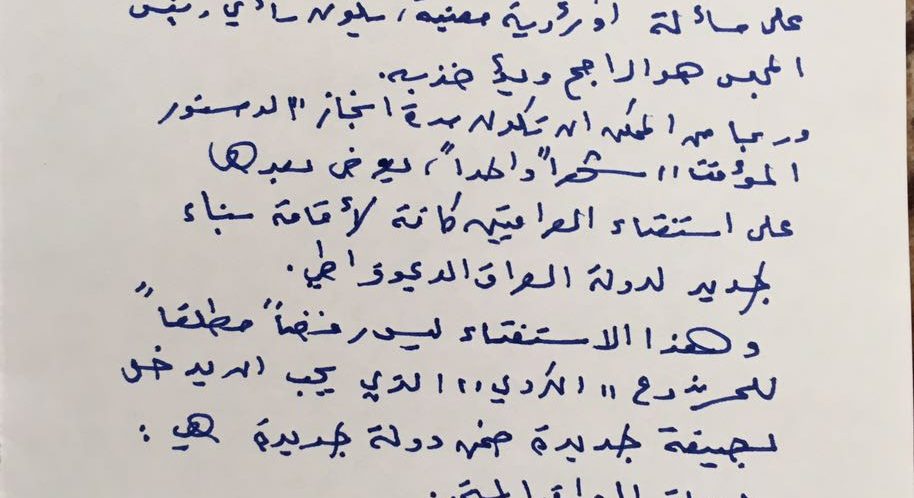 على مسألة او رؤية معينة، سيكون رأي رئيس
المجلس هو الراجح ويؤخذ به.
وربما من الممكن ان تكون مدة انجاز "الدستور
المؤقت" شهراً واحداً، يعرض بعدها
على استفتاء العراقيين كافة لأقامة بناء
جديد لدولة العراق الديموقراطي.
وهذا الاستفتاء ليس رفضاً مطلقاً
للمشروع "الكردي" الذي يجب ان يدخل
بصيغة جديدة ضمن دولة جديدة هي :